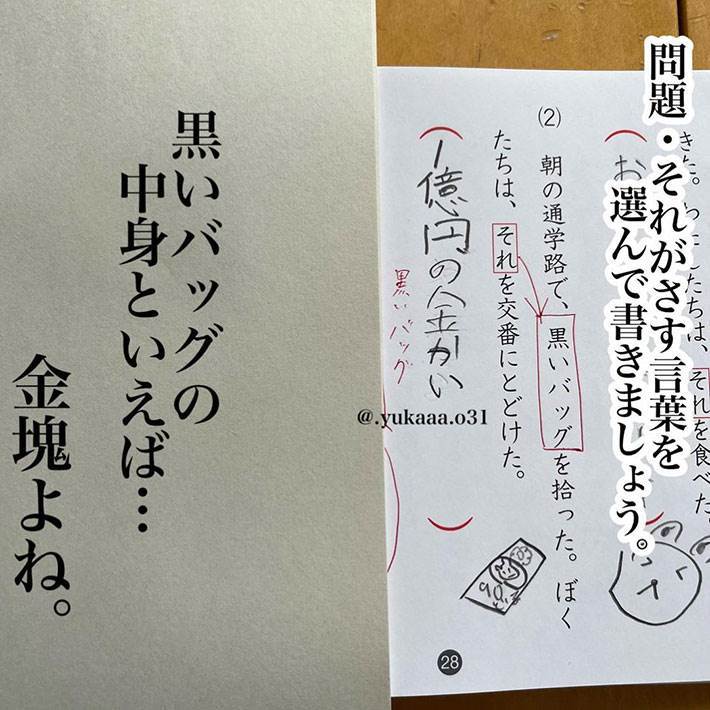 問題・それがさす言葉を
選んで書きましょう。
きた。わたしたちは、それを食べた。
(お
(2) 朝の通学路で、黒いバッグを拾った。ぼく
たちは、それを交番にとどけた。
(1億円の金かい)
黒いバッグ
28
@.yukaaa.o31
黒いバッグの
中身といえば…
金塊よね。